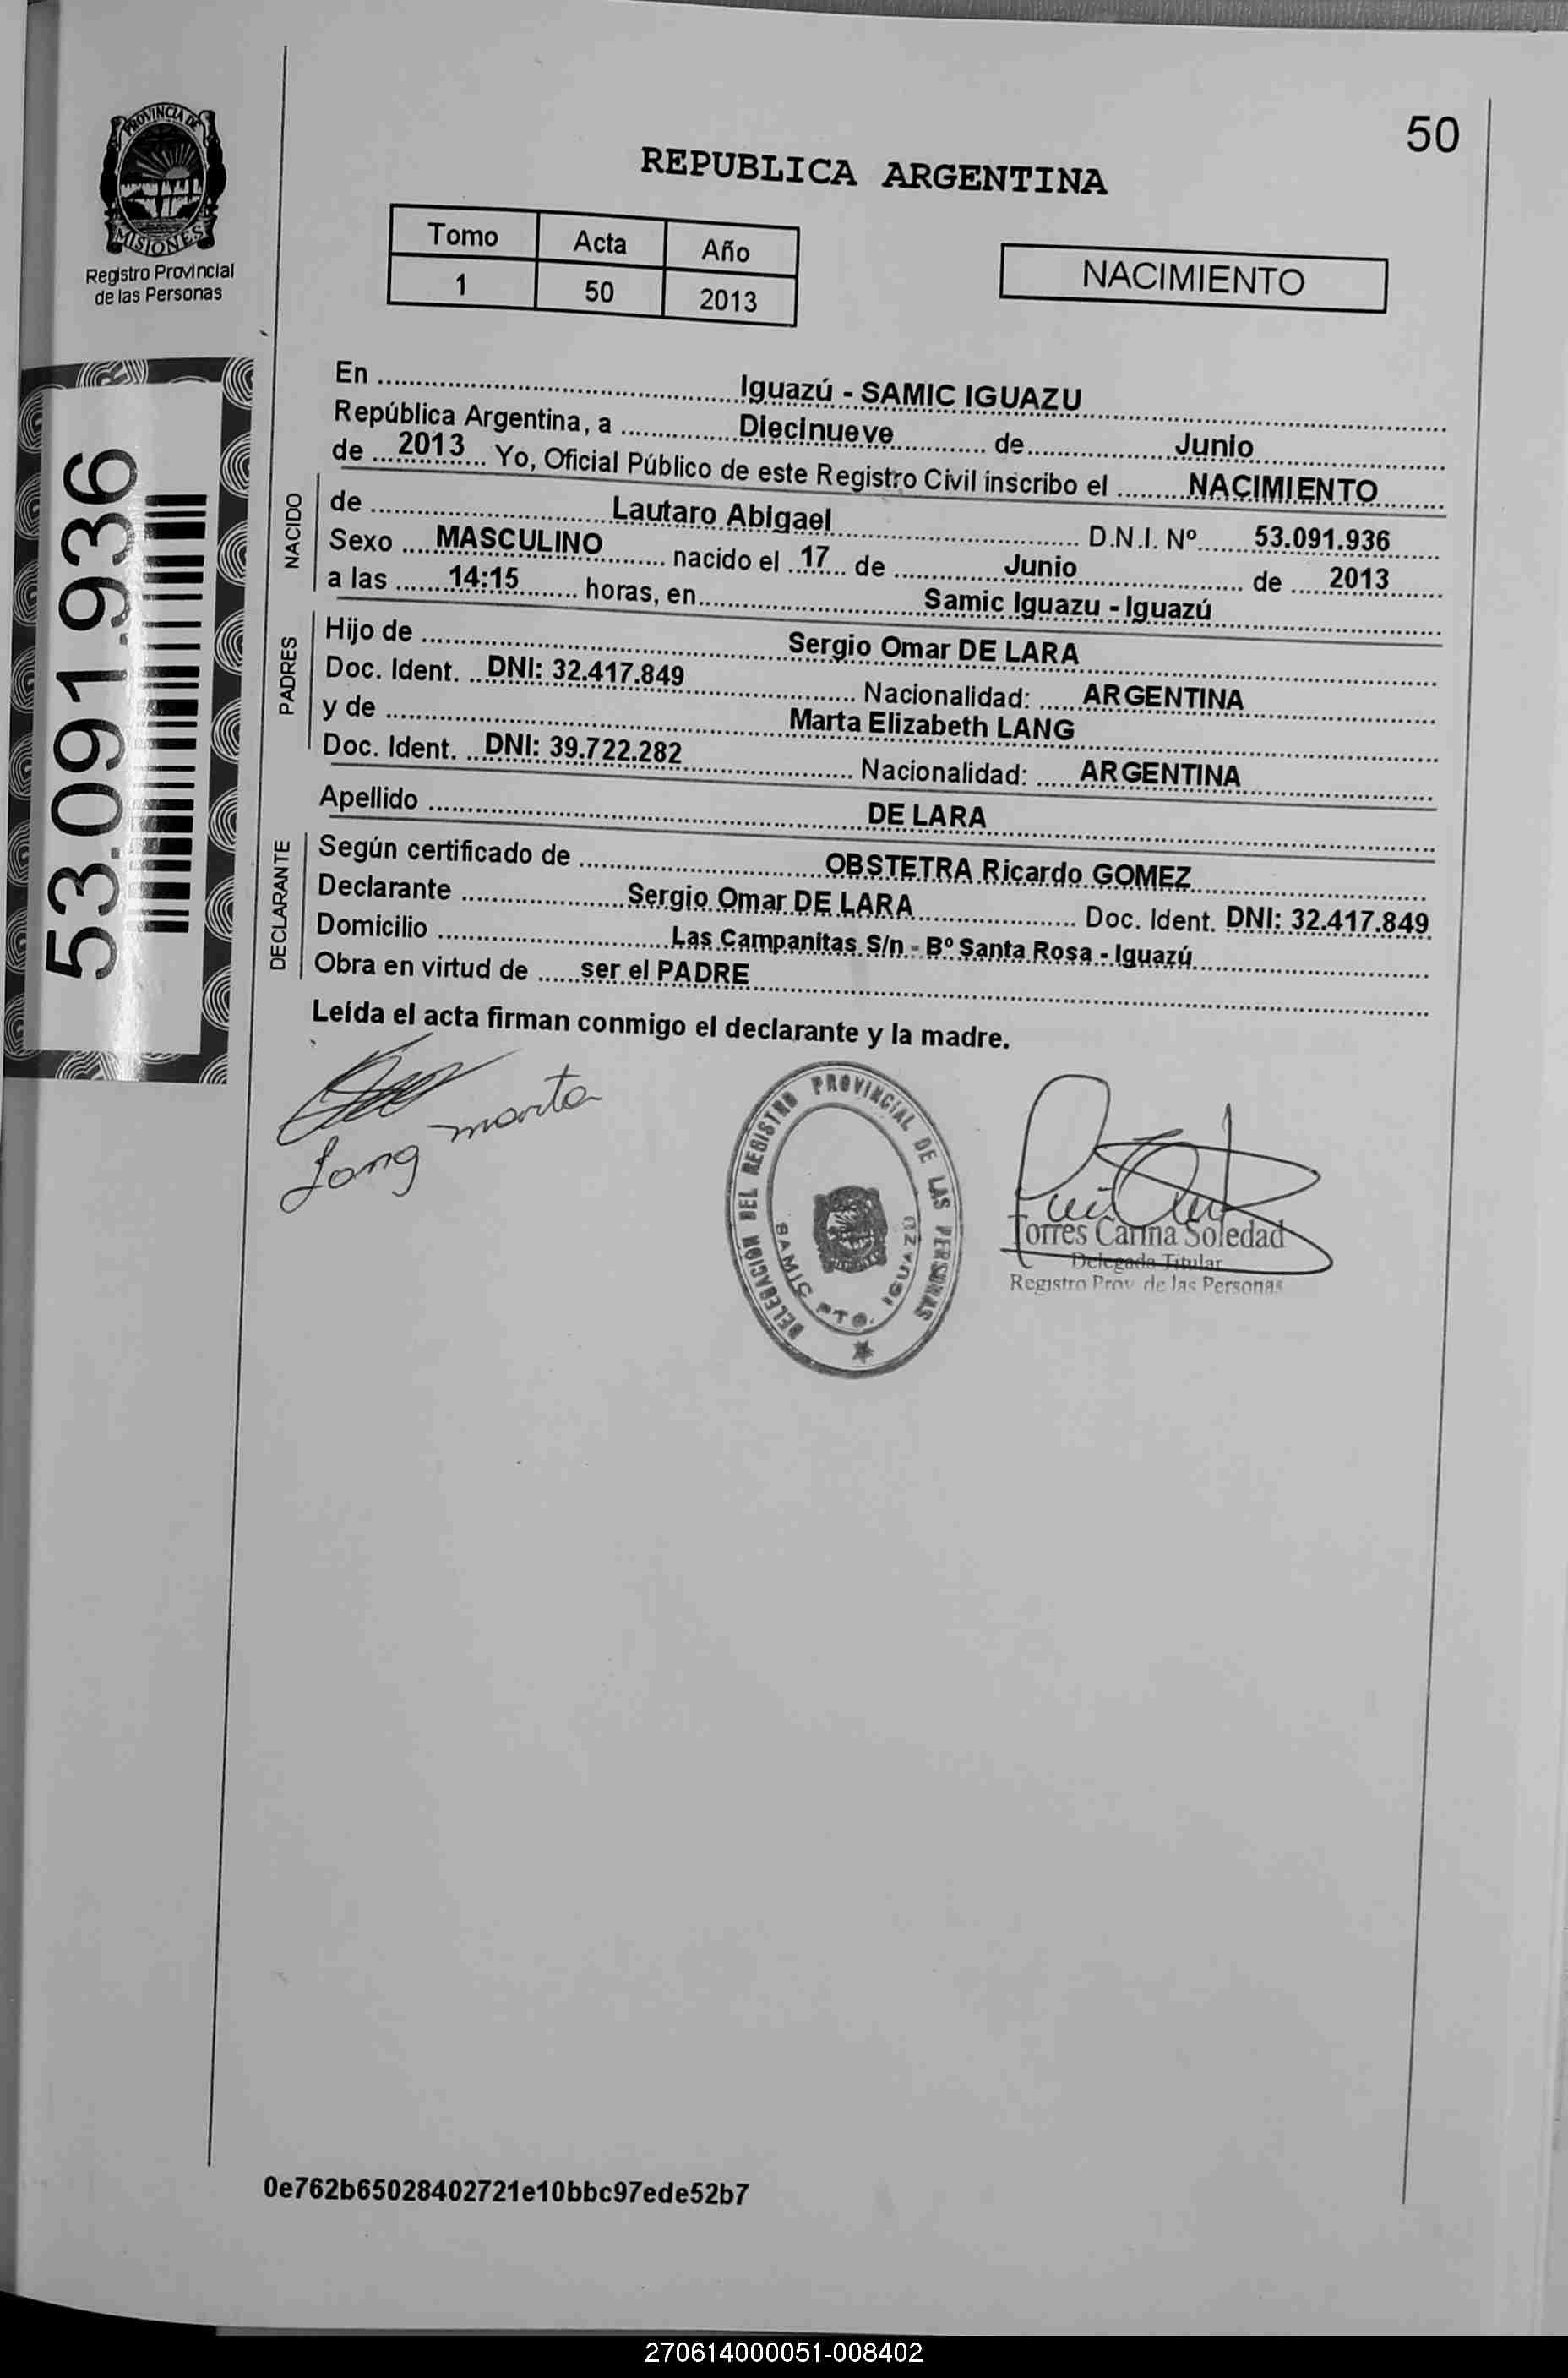 50
PROVINCIA DE
MISIONES
Registro Provincial
de las Personas
REPUBLICA ARGENTINA
Tomo Acta Año
1 50 2013
NACIMIENTO
53.091.936
En Iguazú - SAMIC IGUAZU
República Argentina, a Diecinueve de Junio
de 2013 Yo, Oficial Público de este Registro Civil inscribo el NACIMIENTO
NACIDO
de Lautaro Abigael D.N.I. Nº 53.091.936
Sexo MASCULINO nacido el 17 de Junio de 2013
a las 14:15 horas, en Samic Iguazu - Iguazú
PADRES
Hijo de Sergio Omar DE LARA
Doc. Ident. DNI: 32.417.849 Nacionalidad: ARGENTINA
y de Marta Elizabeth LANG
Doc. Ident. DNI: 39.722.282 Nacionalidad: ARGENTINA
Apellido DE LARA
DECLARANTE
Según certificado de OBSTETRA Ricardo GOMEZ
Declarante Sergio Omar DE LARA Doc. Ident. DNI: 32.417.849
Domicilio Las Campanitas S/n - Bº Santa Rosa - Iguazú
Obra en virtud de ser el PADRE
Leída el acta firman conmigo el declarante y la madre.
Lang marta
DELEGACION DEL REGISTRO PROVINCIAL DE LAS PERSONAS
SAMIC PTO. IGUAZU
Torres Carina Soledad
Delegada Titular
Registro Prov. de las Personas
0e762b65028402721e10bbc97ede52b7
270614000051-008402